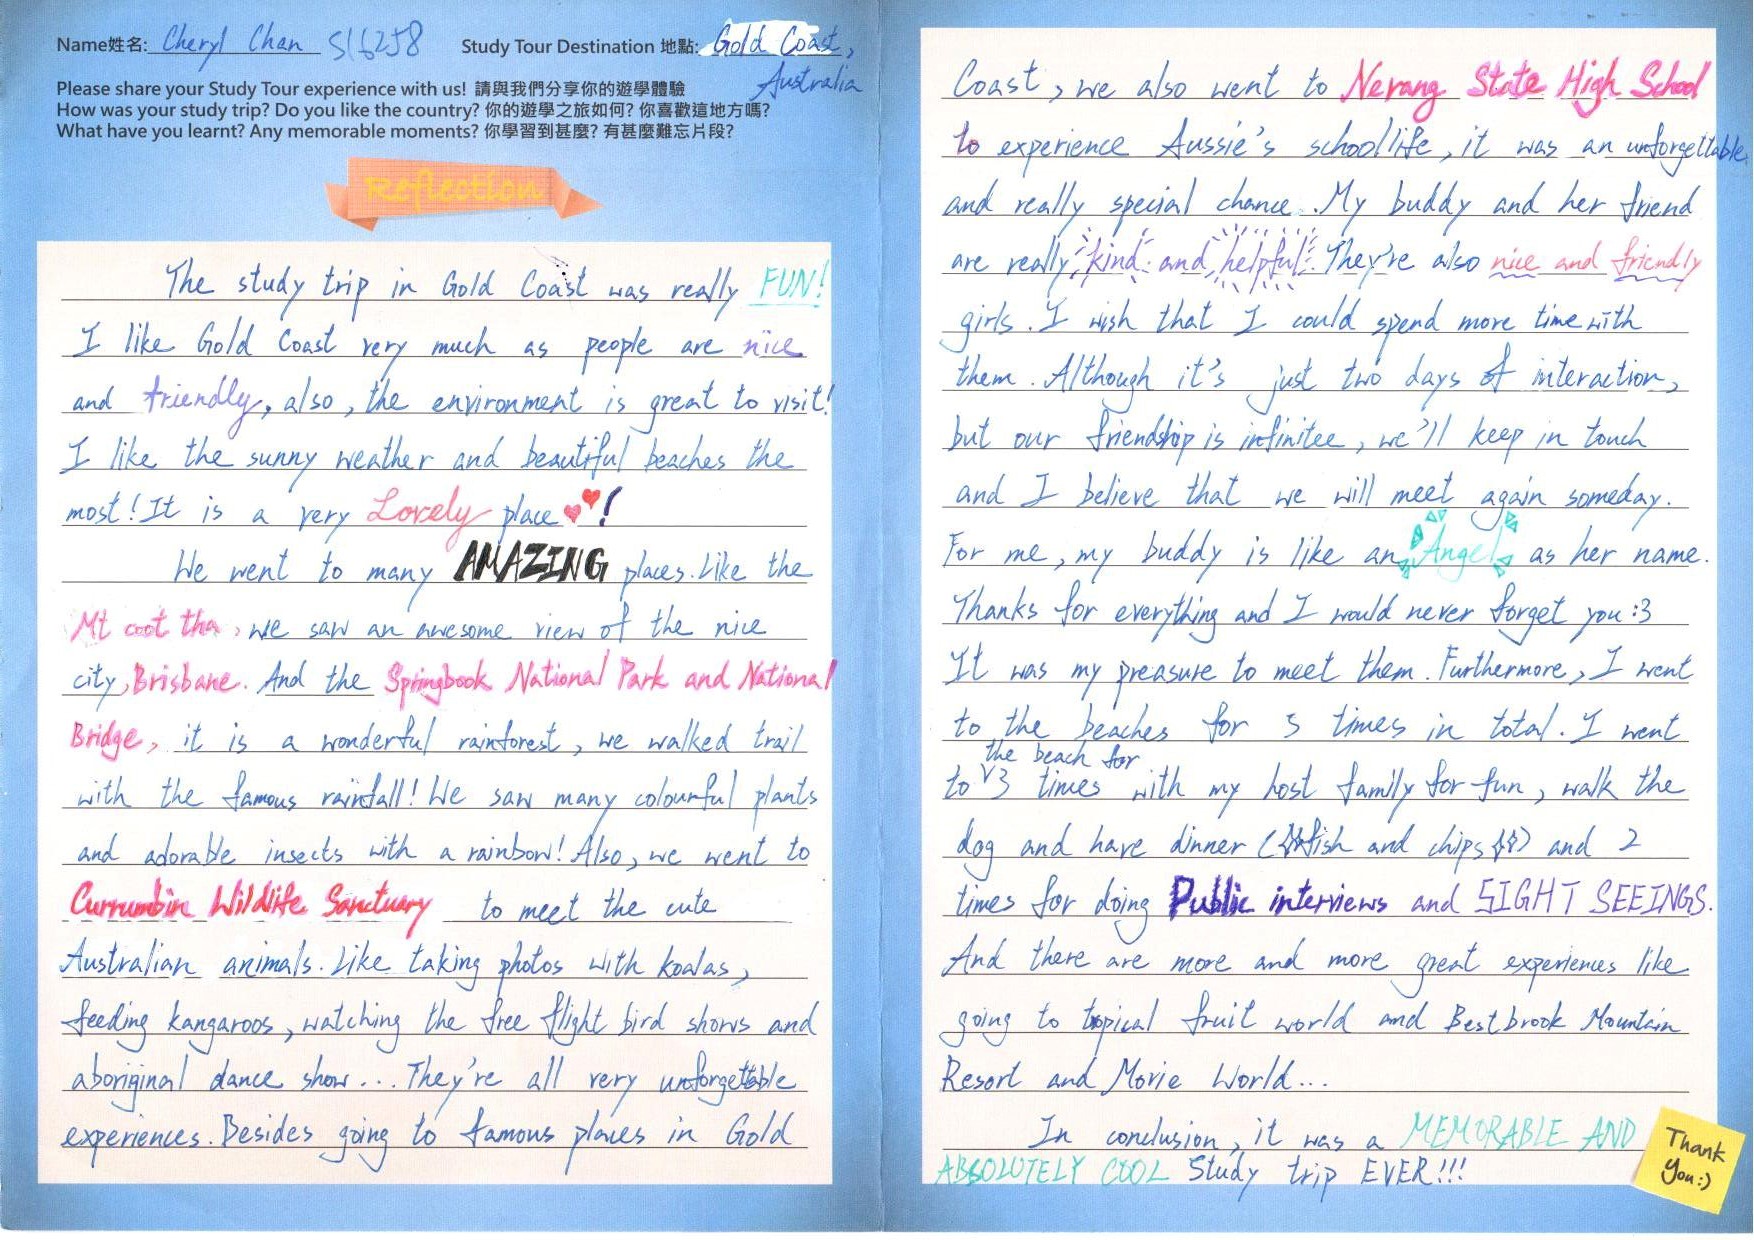 Name姓名: Cheryl Chan S16258 Study Tour Destination 地點: Gold Coast,
Australia
Please share your Study Tour experience with us! 請與我們分享你的遊學體驗
How was your study trip? Do you like the country? 你的遊學之旅如何? 你喜歡這地方嗎?
What have you learnt? Any memorable moments? 你學習到甚麼? 有甚麼難忘片段?
Reflection
The study trip in Gold Coast was really FUN!
I like Gold Coast very much as people are nice
and friendly, also, the environment is great to visit!
I like the sunny weather and beautiful beaches the
most! It is a very Lovely place!
We went to many AMAZING places. Like the
Mt coot tha, we saw an awesome view of the nice
city, Brisbane. And the Springbook National Park and National
Bridge, it is a wonderful rainforest, we walked trail
with the famous rainfall! We saw many colourful plants
and adorable insects with a rainbow! Also, we went to
Currumbin Wildlife Sanctuary to meet the cute
Australian animals. Like taking photos with koalas,
feeding kangaroos, watching the free flight bird shows and
aboriginal dance show... They're all very unforgettable
experiences. Besides going to famous places in Gold
Coast, we also went to Nerang State High School
to experience Aussie's schoollife, it was an unforgettable
and really special chance. My buddy and her friend
are really kind and helpful. They're also nice and friendly
girls. I wish that I could spend more time with
them. Although it's just two days of interaction,
but our friendship is infinitee, we'll keep in touch
and I believe that we will meet again someday.
For me, my buddy is like an Angel as her name.
Thanks for everything and I would never forget you :3
It was my preasure to meet them. Furthermore, I went
to the beaches for 5 times in total. I went
the beach for
to V3 times with my host family for fun, walk the
dog and have dinner (fish and chips) and 2
times for doing Public interviews and SIGHT SEEINGS.
And there are more and more great experiences like
going to tropical fruit world and Bestbrook Mountain
Resort and Movie World...
In conclusion, it was a MEMORABLE AND
ABSOLUTELY COOL Study trip EVER!!!
Thank
you:)